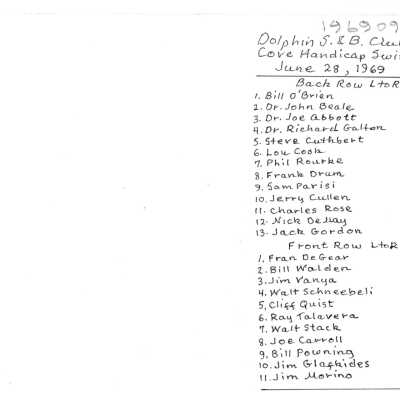 196909
Dolphin S. & B. Clu
Cove Handicap Swi
June 28, 1969
Back Row LtoR
1. Bill O'Brien
2. Dr. John Beale
3. Dr. Joe Abbott
4. Dr. Richard Galton
5. Steve Cuthbert
6. Lou Cook
7. Phil Rourke
8. Frank Drum
9. Sam Parisi
10. Jerry Cullen
11. Charles Rose
12. Nick DeMay
13. Jack Gordon
Front Row LtoR
1. Fran DeGear
2. Bill Walden
3. Jim Vanya
4. Walt Schneebeli
5. Cliff Quist
6. Ray Talavera
7. Walt Stack
8. Joe Carroll
9. Bill Powning
10. Jim Glafkides
11. Jim Morino